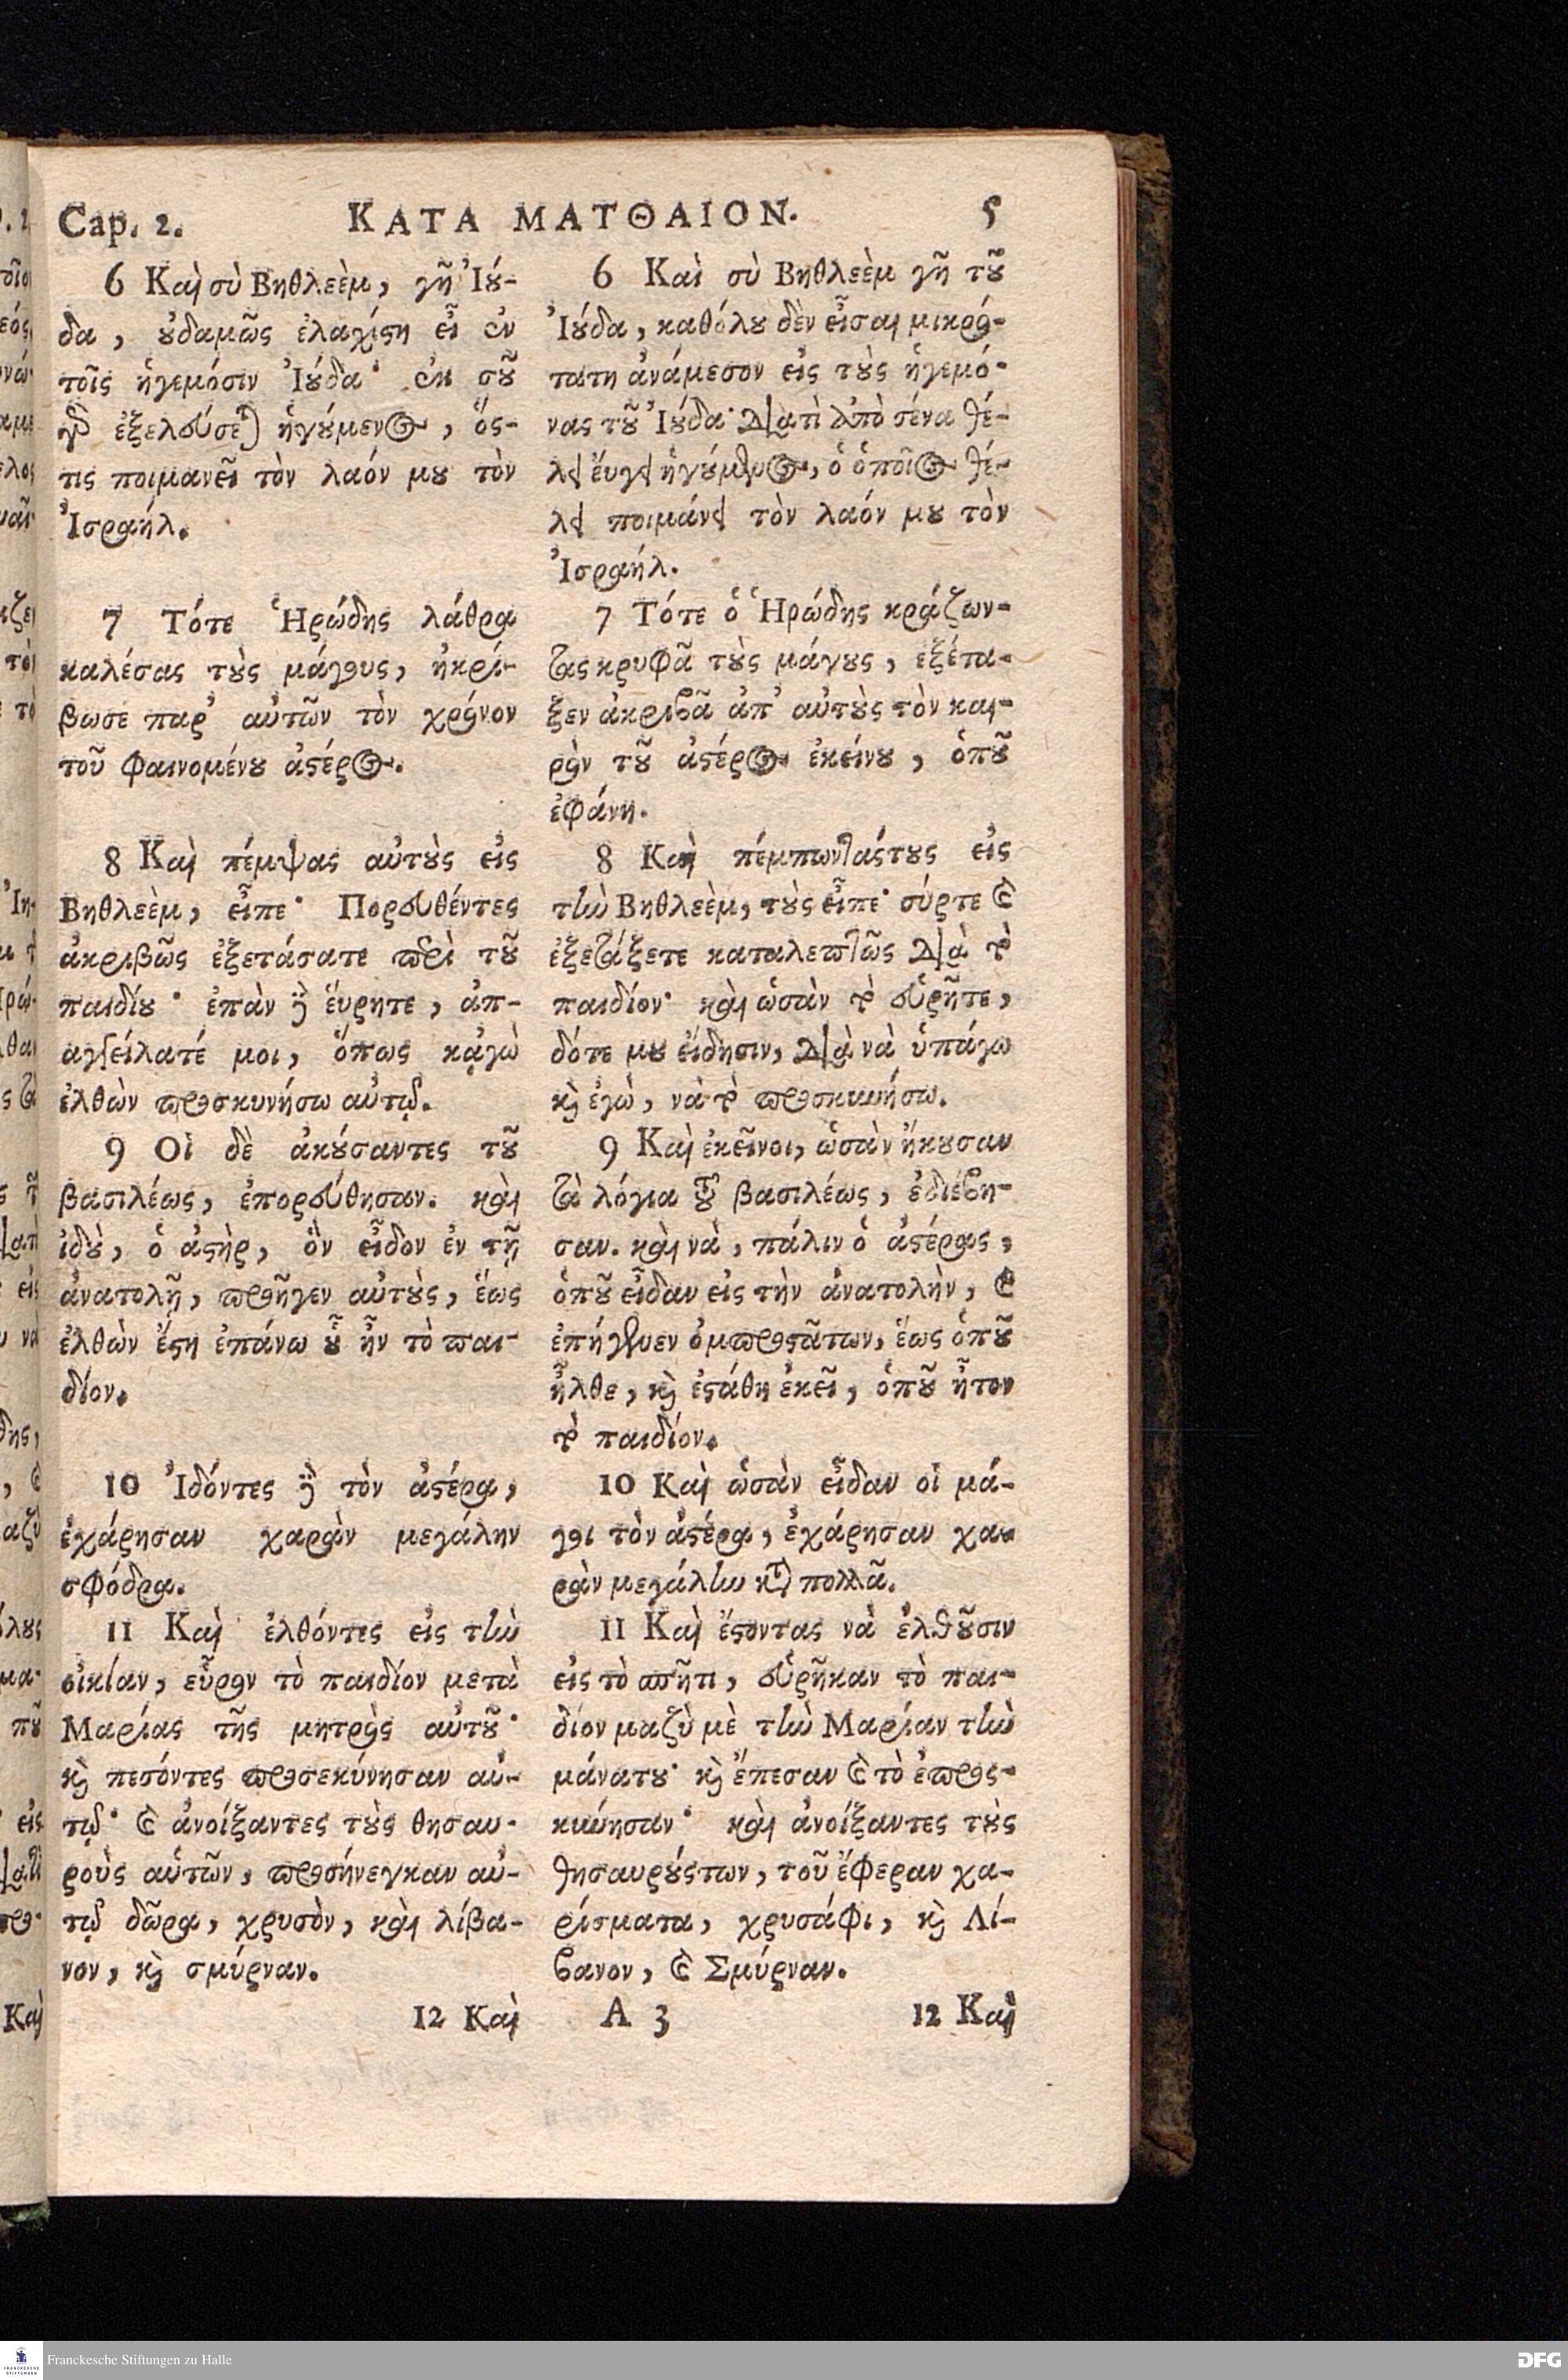 Cap. 2. ΚΑΤΑ ΜΑΤΘΑΙΟΝ. 5
6 Καὶ σὺ Βηθλεὲμ, γῆ Ἰȣ́-
δα, ȣ̓δαμῶς ἐλαχίϛη εἶ ἐν
τοῖς ἡγεμόσιν Ἰȣ́δα· ἐκ σȣ͂
γὸ ἐξελεύσεται ἡγȣ́μενος, ὅς-
τις ποιμανεῖ τὸν λαόν μȣ τὸν
Ἰσραήλ.
7 Τότε Ἡρώδης λάθρα
καλέσας τȣ̀ς μάγȣς, ἠκρί-
βωσε παρ' αὐτῶν τὸν χρόνον
τοῦ φαινομένȣ ἀϛέρος.
8 Καὶ πέμψας αὐτȣ̀ς εἰς
Βηθλεὲμ, εἶπε· Πορευθέντες
ἀκριβῶς ἐξετάσατε περὶ τȣ͂
παιδίȣ· ἐπὰν δὲ ἕυρητε, ἀπ-
αγγείλατέ μοι, ὅπως κᾀγὼ
ἐλθὼν προσκυνήσω αὐτῷ.
9 Οἱ δὲ ἀκȣ́σαντες τȣ͂
βασιλέως, ἐπορεύθησαν. καὶ
ἰδȣ̀, ὁ ἀϛὴρ, ὃν εἶδον ἐν τῇ
ἀνατολῇ, προῆγεν αὐτȣ̀ς, ἕως
ἐλθὼν ἔϛη ἐπάνω ȣ̔͂ ἦν τὸ παι-
δίον.
10 Ἰδόντες δὲ τὸν ἀϛέρα,
ἐχάρησαν χαρὰν μεγάλην
σφόδρα.
11 Καὶ ἐλθόντες εἰς τὴν
οἰκίαν, εὗρον τὸ παιδίον μετὰ
Μαρίας τῆς μητρὸς αὐτȣ͂·
κὶ πεσόντες προσεκύνησαν αὐ-
τῷ· καὶ ἀνοίξαντες τȣ̀ς θησαυ-
ροὺς αὑτῶν, προσήνεγκαν αὐ-
τῷ δῶρα, χρυσὸν, καὶ λίβα-
νον, κὶ σμύρναν.
12 Καὶ
6 Καὶ σὺ Βηθλεὲμ γῆ τȣ͂
Ἰȣ́δα, καθόλȣ δὲν εἶσαι μικρό-
τατη ἀνάμεσον εἰς τȣ̀ς ἡγεμό-
νας τȣ͂ Ἰȣ́δα· Διατὶ ἀπὸ σένα θέ-
λει ἔυγει ἡγȣ́μενος, ὁ ὁποῖος θέ-
λει ποιμάνει τὸν λαόν μȣ τὸν
Ἰσραήλ.
7 Τότε ὁ Ἡρώδης κράζων-
τας κρυφᾶ τȣ̀ς μάγȣς, εξέτα-
ξεν ἀκριβᾶ ἀπ' αὐτȣ̀ς τὸν και-
ρὸν τȣ͂ ἀϛέρος ἐκείνȣ, ὁπȣ͂
ἐφάνη.
8 Καὶ πέμπωντάςτȣς εἰς
τὴν Βηθλεὲμ, τȣ̀ς εἶπε· σύρτε καὶ
ἐξετάξετε καταλεπτῶς Διὰ τὸ
παιδίον· καὶ ὡσὰν τὸ εὑρῆτε,
δότε μȣ εἴδησιν, Διὰ νὰ ὑπάγω
κὶ ἐγὼ, νὰ τὸ προσκυνήσω.
9 Καὶ ἐκεῖνοι, ὡσὰν ἤκȣσαν
τὰ λόγια τȣ͂ βασιλέως, ἐδιέβη-
σαν. καὶ νὰ, πάλιν ὁ ἀϛέρας,
ὁπȣ͂ εἶδαν εἰς τὴν ἀνατολὴν,
ἐπήγαινεν ὀμπροϛᾶτων, ἕως ὁπȣ͂
ἦλθε, κὶ ἐϛάθη ἐκεῖ, ὁπȣ͂ ἦτον
τὸ παιδίον.
10 Καὶ ὡσὰν εἶδαν οἱ μά-
γοι τὸν ἀϛέρα, ἐχάρησαν χα-
ρὰν μεγάλην κατὰ πολλᾶ.
11 Καὶ ἔϛοντας νὰ ἐλθȣ͂σιν
εἰς τὸ σπῆτι, εὑρῆκαν τὸ παι-
δίον μαζὺ μὲ τὴν Μαρίαν τὴν
μάνατȣ· κὶ ἔπεσαν καὶ τὸ ἐπροσ-
κυνησαν· καὶ ἀνοίξαντες τȣ̀ς
θησαυρȣ́ςτων, τοῦ ἔφεραν χα-
ρίσματα, χρυσάφι, κὶ Λί-
βανον, καὶ Σμύρναν.
A 3 12 Καὶ
Franckesche Stiftungen zu Halle
DFG